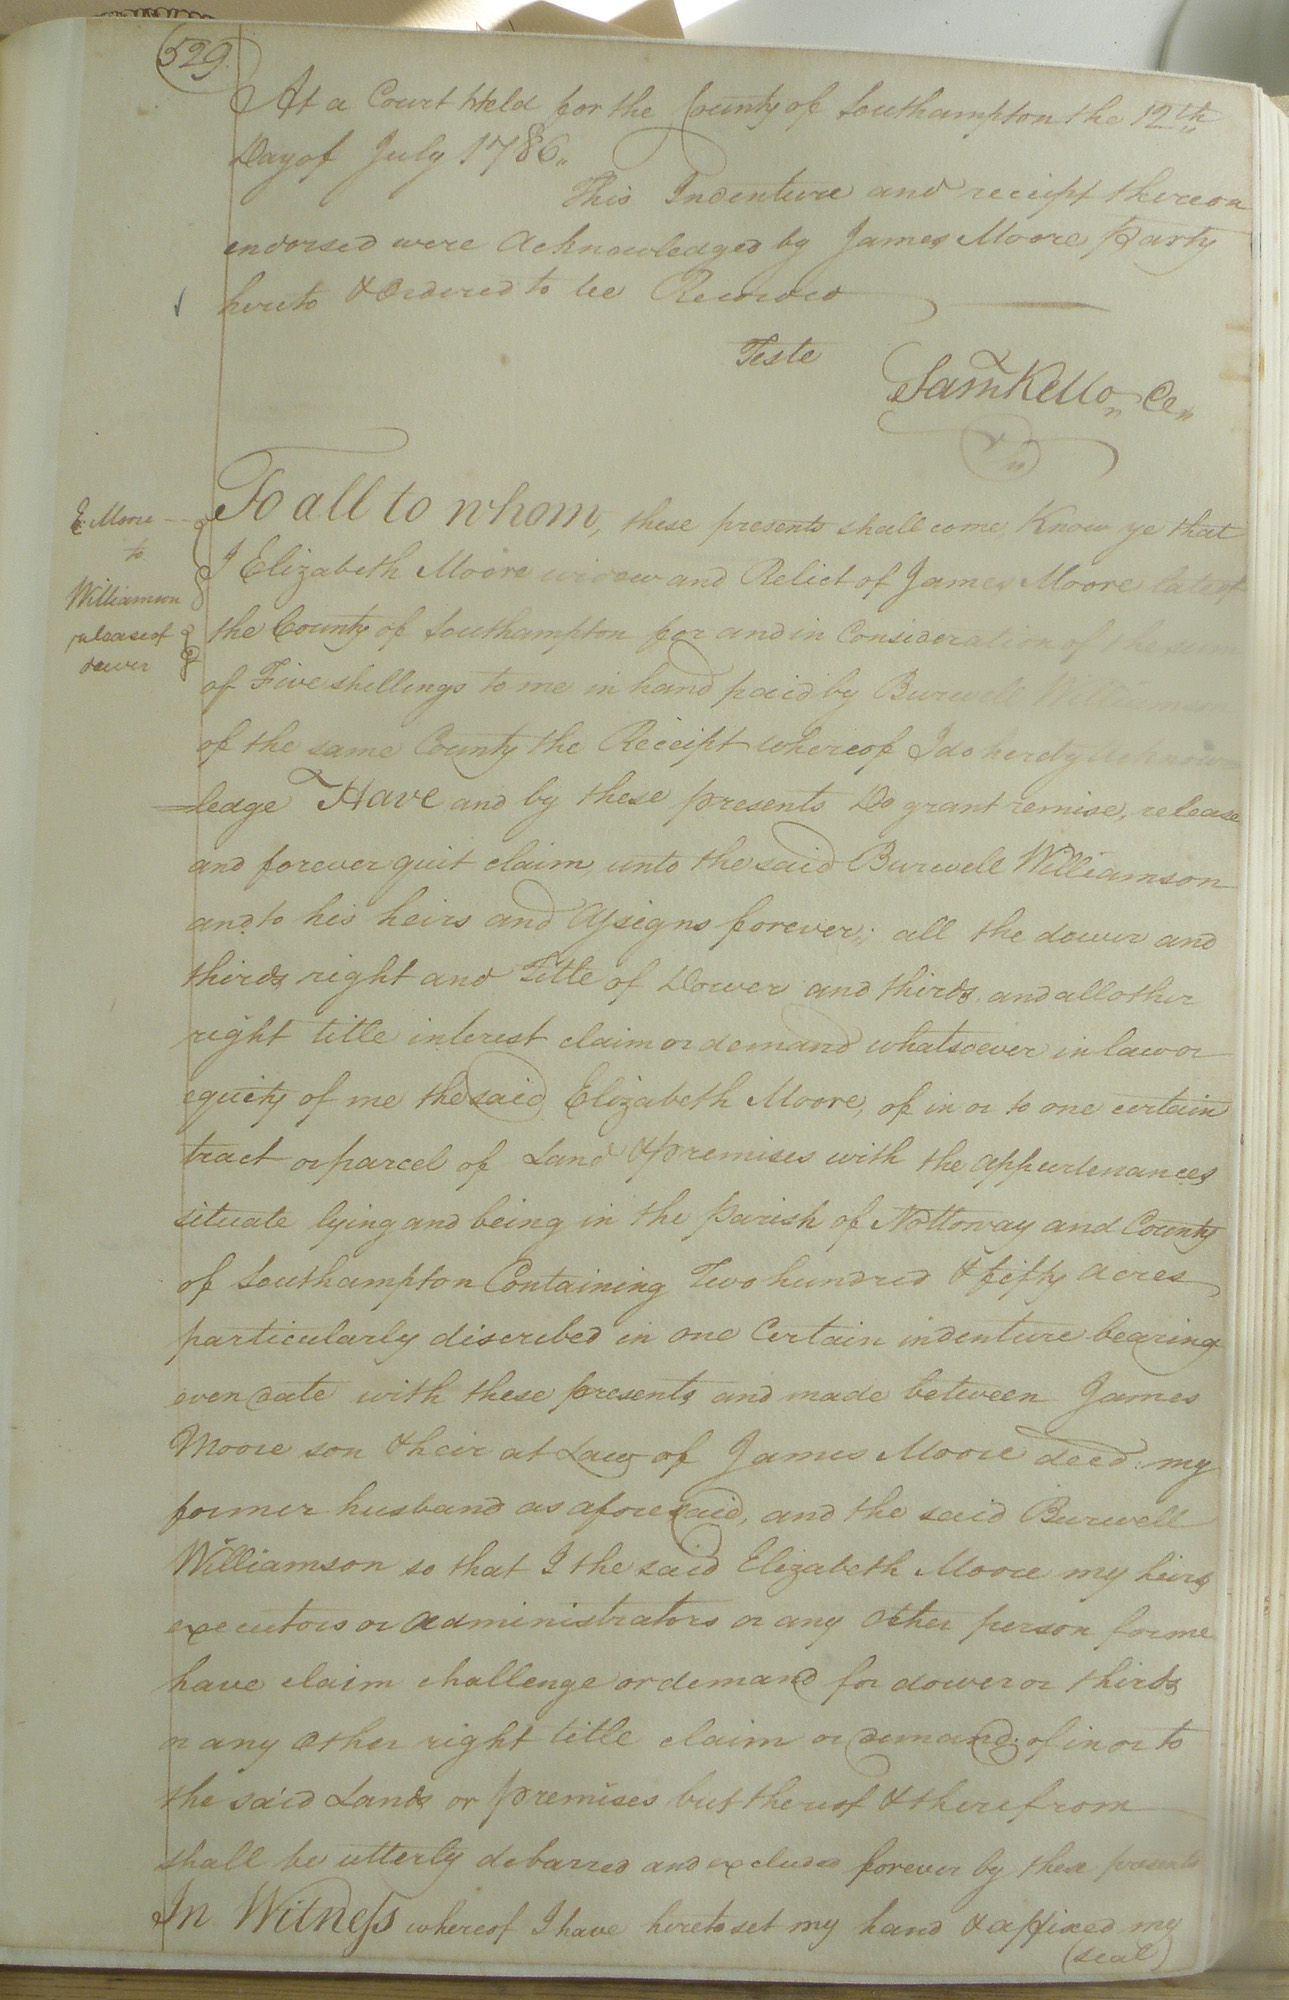 529.
At a Court Held for the County of Southampton the 12th
Day of July 1786.
This Indenture and reciept thereon
endorsed were Acknowledged by James Moore Party
hereto & Ordered to be Recorded
Teste
Saml Kello Ct
E Moore
to
Williamson
release of
dower
To all to whom, these presents shall come Know ye that
I Elizabeth Moore widow and Relict of James Moore late of
the County of Southampton for and in Consideration of the sum
of Five shillings to me in hand paid by Burwell Williamson
of the same County the Receipt whereof I do hereby acknow
ledge Have and by these presents Do grant remise, release
and forever quit claim, unto the said Burwell Williamson
and to his heirs and Assigns forever; all the dower and
thirds right and Title of Dower and thirds and all other
right title interest claim or demand whatsoever in law or
equity of me the said Elizabeth Moore, of in or to one certain
tract or parcel of Land & premises with the appurtenances
situate lying and being in the parish of Nottoway and County
of Southampton Containing Two hundred & fifty acres
particularly discribed in one Certain indenture bearing
even date with these presents and made between James
Moore son & heir at Law of James Moore decd: my
former husband as aforesaid, and the said Burwell
Williamson so that I the said Elizabeth Moore my heirs
executors or administrators or any other person for me
have claim challenge or demand for dower or thirds
or any other right title claim or demand of in or to
the said Lands or premises but thereof & therefrom
shall be utterly debarred and excluded forever by these presents
In Witness whereof I have hereto set my hand & affixed my
(seal)